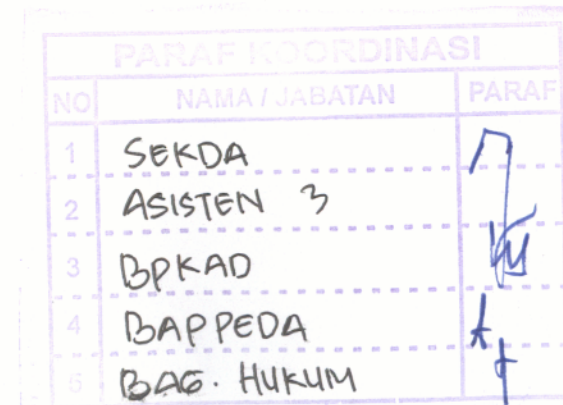 PARAF KOORDINASI
NO NAMA / JABATAN PARAF
1 SEKDA
2 ASISTEN 3
3 BPKAD
4 BAPPEDA
5 BAG. HUKUM